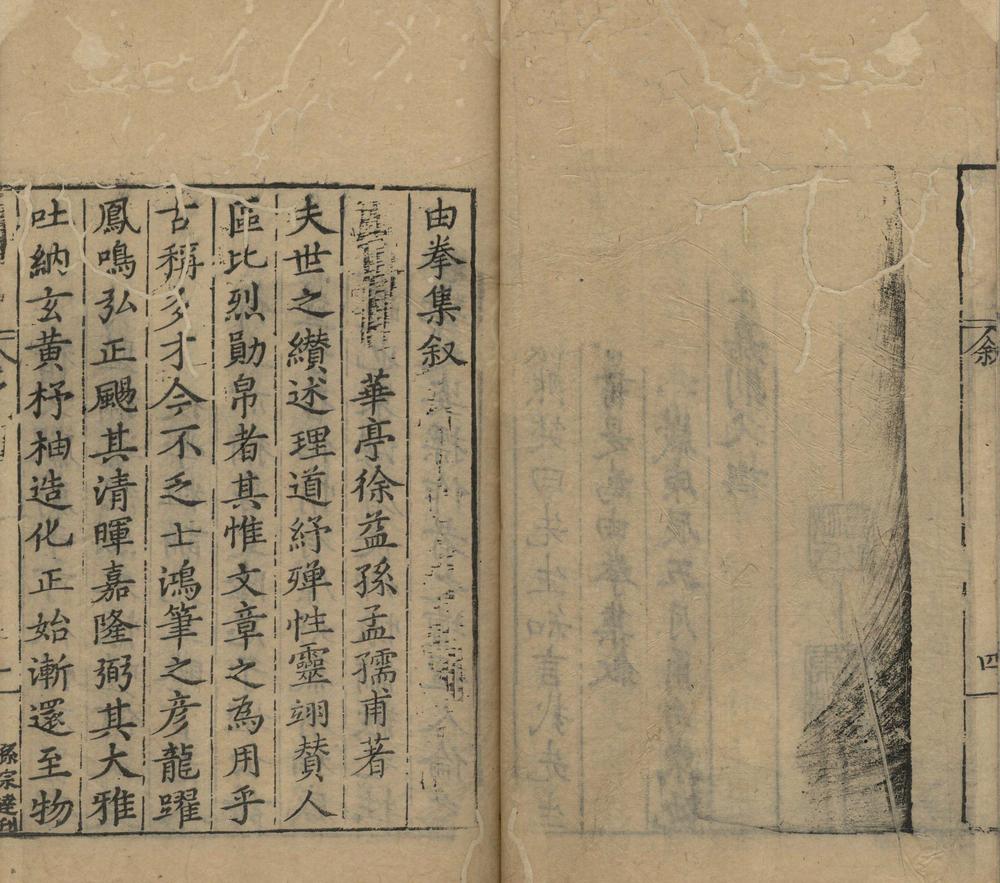 敘
四
由拳集叙
華亭徐益孫孟孺甫著
夫世之纘述理道紓殫性靈翊贊人
區比烈勛帛者其惟文章之為用乎
古稱多才今不乏士鴻筆之彦龍躍
鳳鳴弘正颺其清暉嘉隆弼其大雅
吐納玄黄杼柚造化正始漸還至物
孫宗達刊